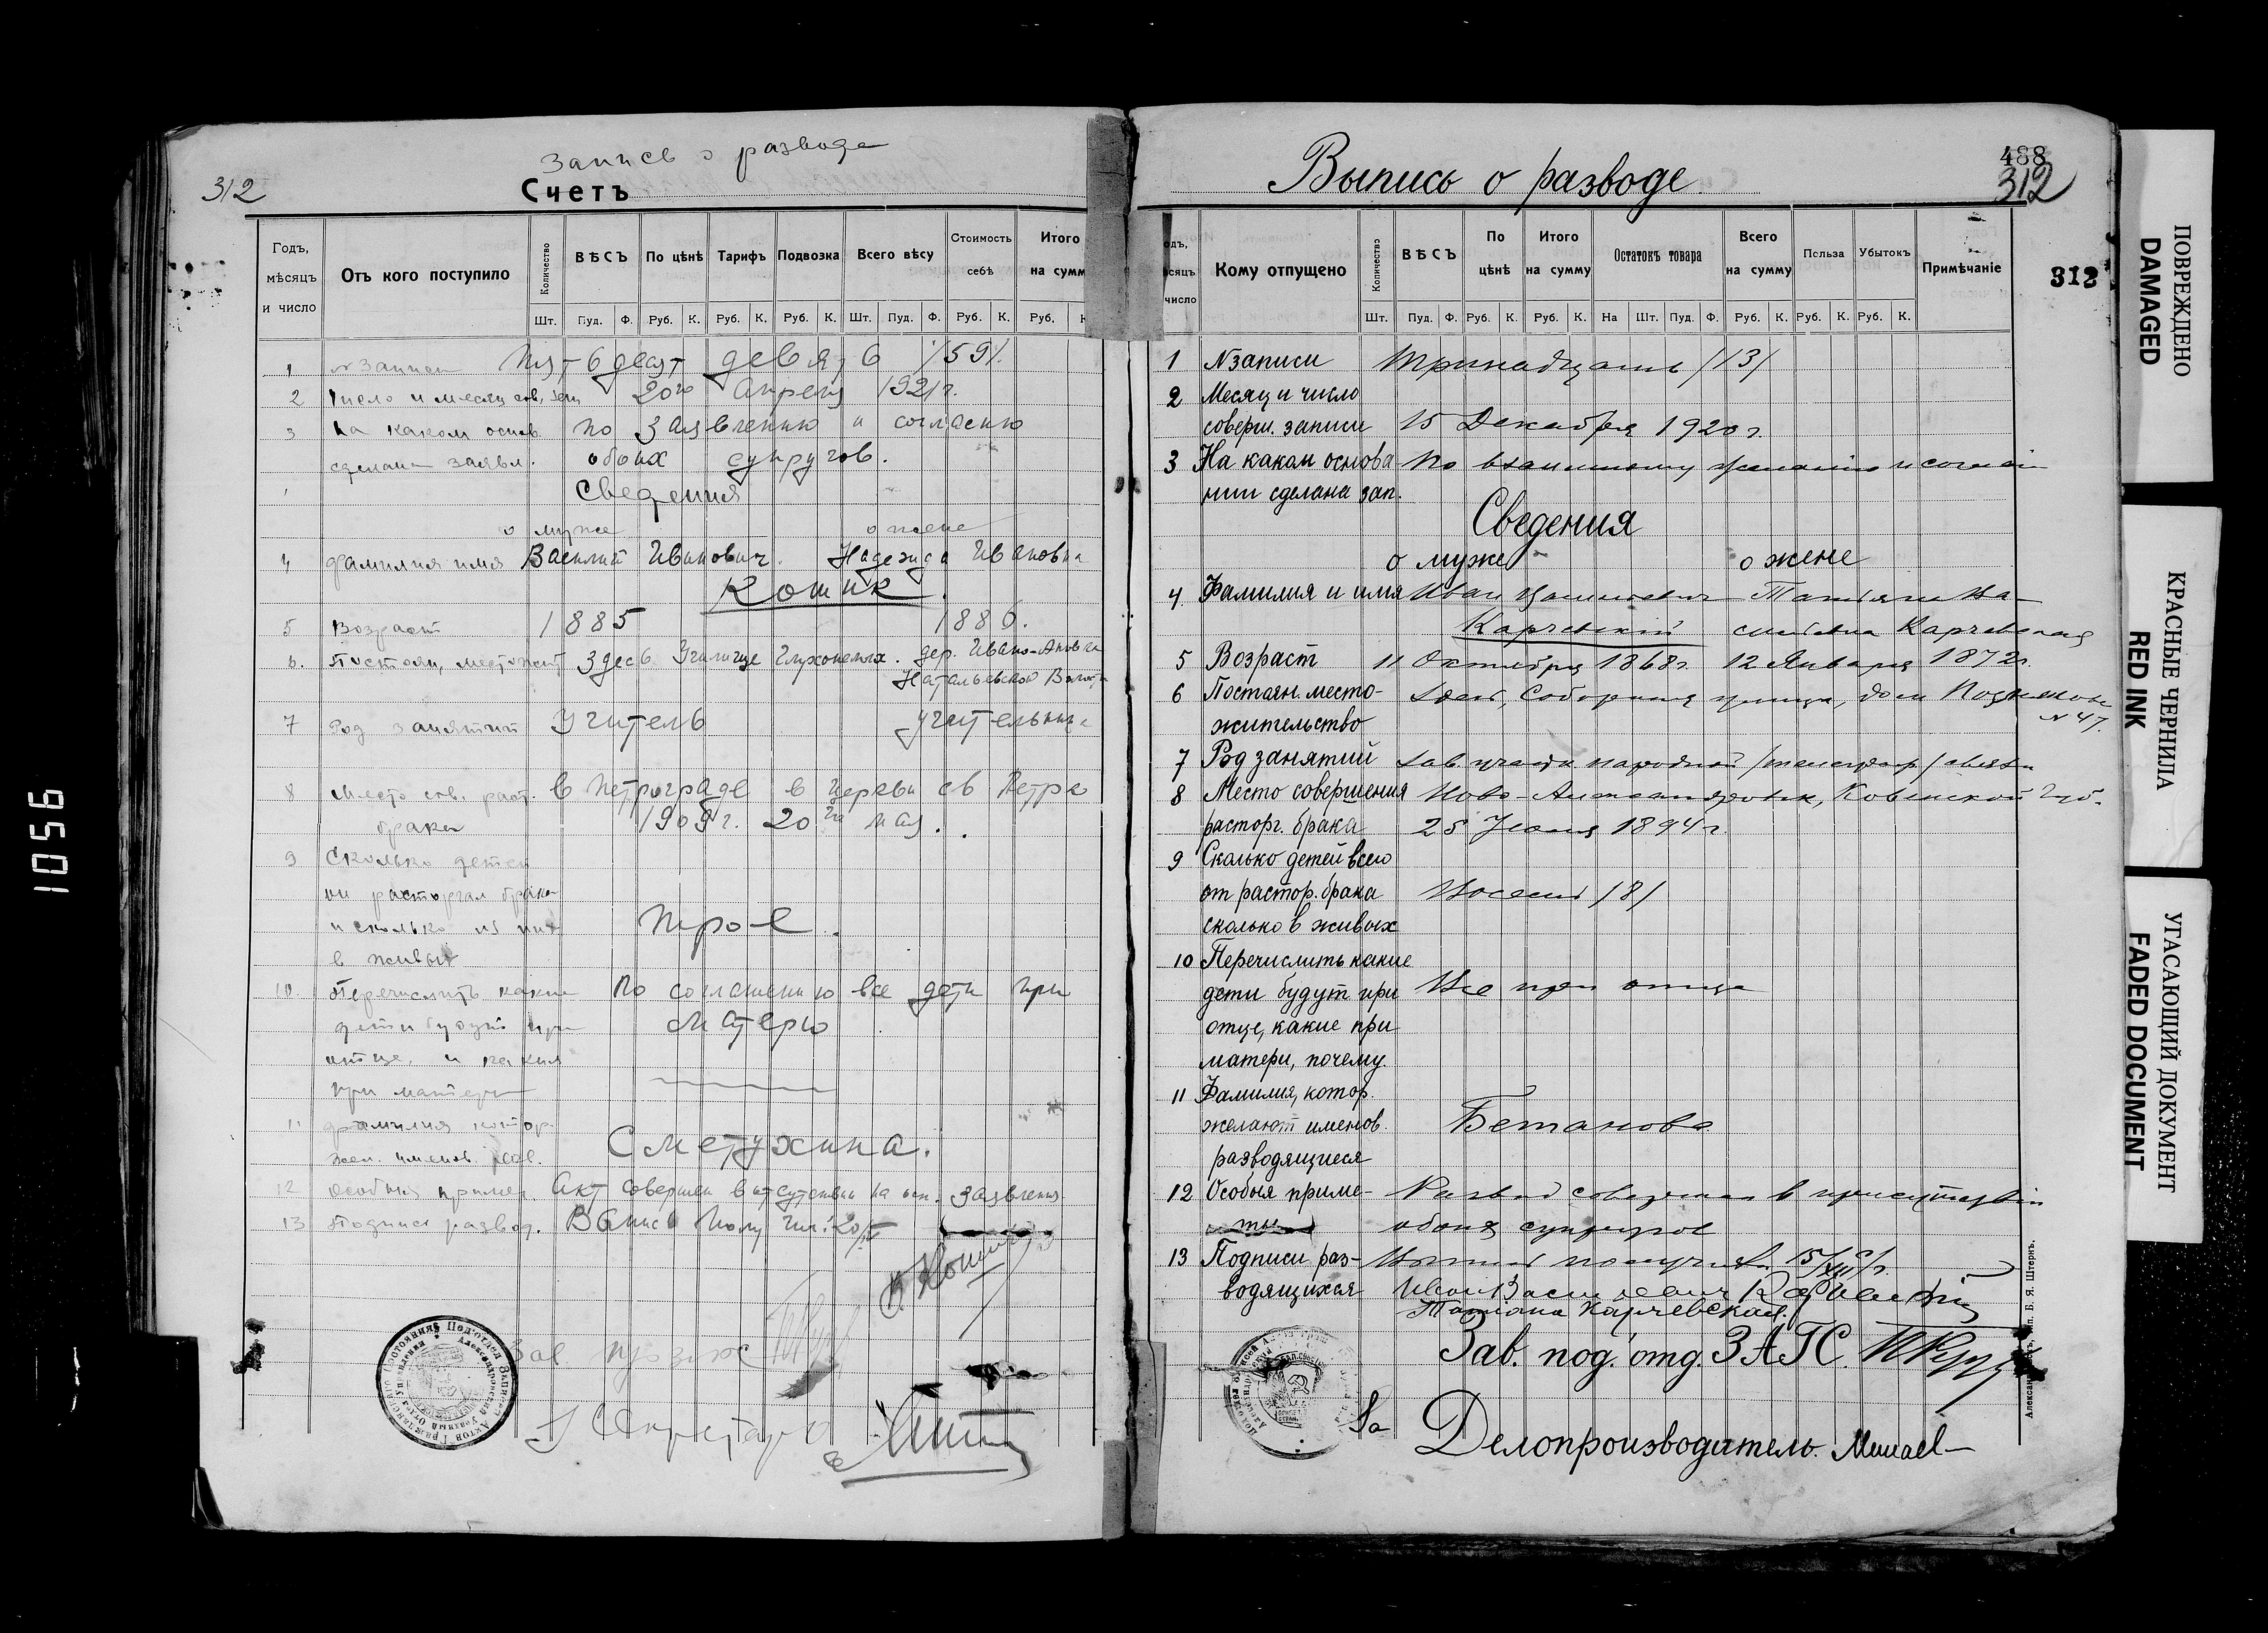 Запись о разводе
312
Счетъ
Годъ, мѣсяцъ и число
Отъ кого поступило
Количество
ВѢСЪ
По цѣнѣ
Тарифъ
Подвозка
Всего вѣсу
Стоимость себѣ
Итого на сумм
Шт. Пуд. Ф. Руб. К. Руб. К. Руб. К. Шт. Пуд. Ф. Руб. К. Руб.
1 № записи Пятьдесят девять /59/.
2 Число и месяц сов. зап. 20го Апреля 1921 г.
3 На каком основ. по заявлению и согласию
сделана заявл. обоих супругов.
Сведения
о муже о жене
4 Фамилия имя Василий Иванович. Надежда Ивановна
Кошик.
5 Возраст 1885 1886.
6. Постоян. местожит. Здесь Училище Глухонемых. дер. Ивано-Анновка
Натальевской Волости
7 Род занятий Учитель Учительница
8 Место сов. раст. в Петрограде в Церкви св Петра
брака 1909 г. 20го мая.
9 Сколько детей
от расторгн брака
и сколько из них Трое.
в живых
10. Перечислить какие По соглашению все дети при
дети будут при матерью
отце, и какия
при матери
11 Фамилия котор.
жел. именов. разв. Сметухина.
12 Особыя примеч. Акт совершен в отсутствии на осн. заявления.
13 Подписи развод. Выпись Получил 20/IV
В. Кошик
Зав
Секретарь
Под'отдел Записи Актов Гражданского Состояния
Александровский Уездный Отдел Управления
Выпись о разводе
488
312
312
Кому отпущено
Количество
ВѢСЪ
По цѣнѣ
Итого на сумму
Остатокъ товара
Всего на сумму
Польза
Убытокъ
Примѣчаніе
Шт. Пуд. Ф. Руб. К. Руб. К. На Шт. Пуд. Ф. Руб. К. Руб. К. Руб. К.
1 № записи Тринадцать /13/
2 Месяц и число
соверш. записи 15 Декабря 1920 г.
3 На каком основа По взаимному желанию и соглаш
нии сделана зап.
Сведения
о муже о жене
4 Фамилия и имя Иван Татьяна Ва-
Карчевский сильевна Карчевская
5 Возраст 11 Октября 1868 г. 12 Января 1872 г.
6 Постоян. место- Здесь, Соборная улица, дом
жительство № 47.
7 Род занятий Зав. народной /телеграф/ связи
8 Место совершения Ново-Александровск, Ковенской Губ.
расторг. брака 25 Июля 1894 г.
9 Сколько детей всего
от растор. брака Восемь /8/
сколько в живых
10 Перечислить какие
дети будут при Все при отце
отце, какие при
матери, почему.
11 Фамилия, котор.
желают именов. Бетанова
разводящиеся
12 Особыя приме- Развод совершен в присутствии
ты обоих супругов
13 Подписи раз- Выпись получил 15/XII
водящихся Иван Васильевич Карчевский
Татиана Карчевская.
Зав. под'отд. ЗАГС.
За Делопроизводитель. Минаев
Тип. Б. Я. Штернъ.
ПОВРЕЖДЕНО
DAMAGED
КРАСНЫЕ ЧЕРНИЛА
RED INK
УГАСАЮЩИЙ ДОКУМЕНТ
FADED DOCUMENT
1056